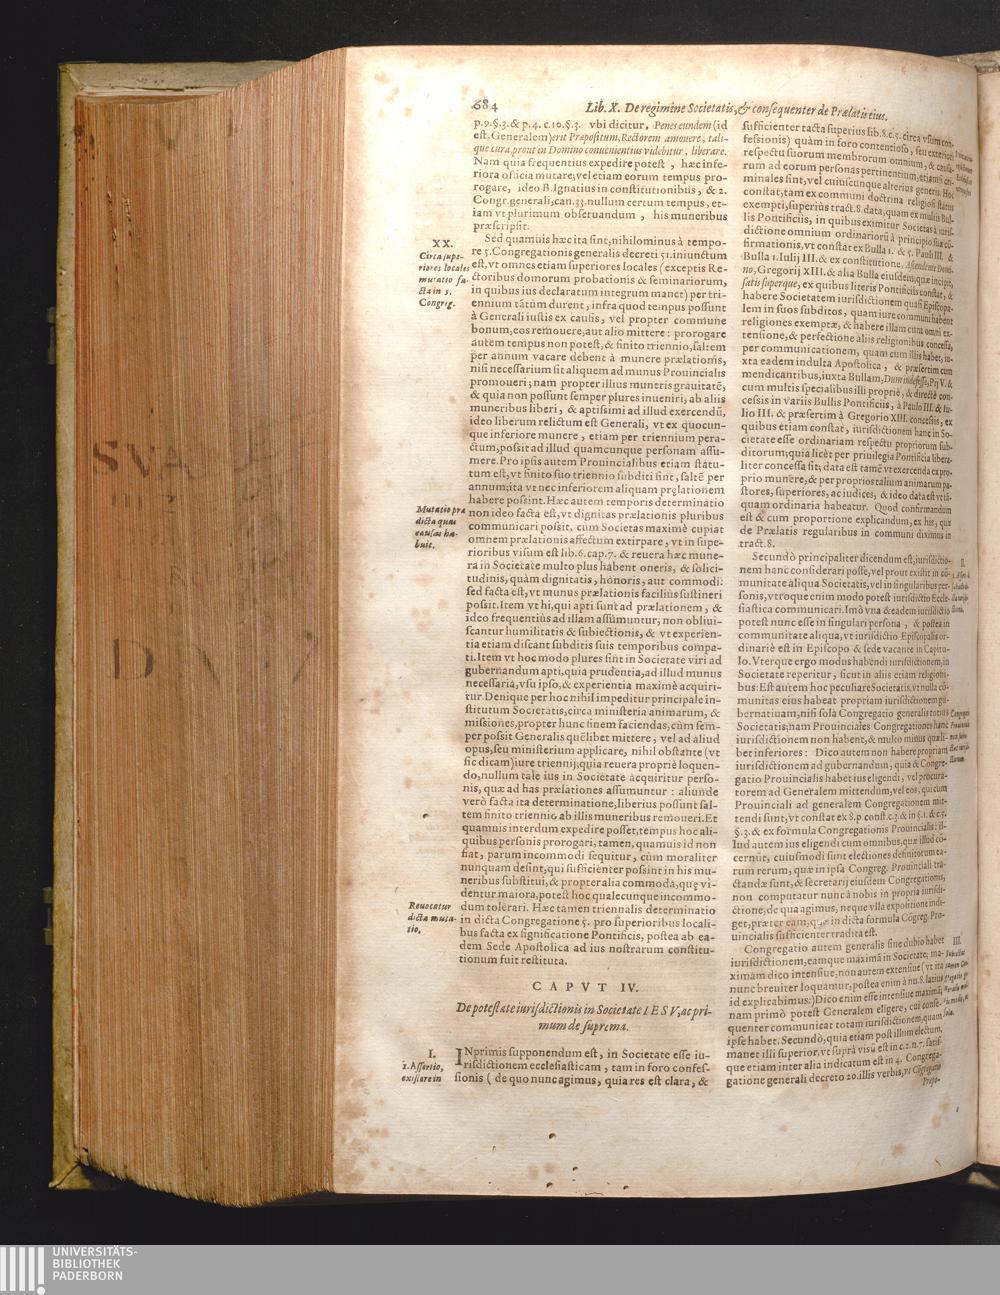 684 Lib. X. De regimine Societatis, & consequenter de Prælatis eius.
p.9.§.3.& p.4.c.10.§.3. vbi dicitur, Penes eundem (id
est, Generalem) erit Præpositum, Rectorem amouere, tali-
que cura, prout in Domino conuenientius videbitur, liberare.
Nam quia frequentius expedire potest, hæc infe-
riora officia mutare, vel etiam eorum tempus pro-
rogare, ideo B. Ignatius in constitutionibus, & 2.
Congr. generali, can. 33. nullum certum tempus, et-
iam vt plurimum obseruandum, his muneribus
præscripsit.
XX.
Circa supe-
riores locales
mutatio fa-
cta in 5.
Congreg.
Sed quamuis hæc ita sint, nihilominus à tempo-
re 5. Congregationis generalis decreti 51. iniunctum
est, vt omnes etiam superiores locales (exceptis Re-
ctoribus domorum probationis & seminariorum,
in quibus ius declaratum integrum manet) per tri-
ennium tãtùm durent, infra quod tempus possunt
à Generali iustis ex causis, vel propter commune
bonum, eos remouere, aut aliò mittere: prorogare
autem tempus non potest, & finito triennio, saltem
per annum vacare debent à munere prælationis,
nisi necessarium sit aliquem ad munus Prouincialis
promoueri; nam propter illius muneris grauitatẽ,
& quia non possunt semper plures inueniri, ab aliis
muneribus liberi, & aptissimi ad illud exercendũ,
ideo liberum relictum est Generali, vt ex quocun-
que inferiore munere, etiam per triennium pera-
ctum, possit ad illud quamcunque personam assu-
mere. Pro ipsis autem Prouincialibus etiam statu-
tum est, vt finito suo triennio subditi sint, saltẽ per
annum; ita vt nec inferiorem aliquam prelationem
habere possint. Hæc autem temporis determinatio
Mutatio præ
dicta quas
causas ha-
buit.
non ideo facta est, vt dignitas prælationis pluribus
communicari possit, cum Societas maximè cupiat
omnem prælationis affectum extirpare, vt in supe-
rioribus visum est lib. 6. cap. 7. & reuera hæc mune-
ra in Societate multo plus habent oneris, & solici-
tudinis, quàm dignitatis, honoris, aut commodi:
sed facta est, vt munus prælationis facilius sustineri
possit. Item vt hi, qui apti sunt ad prælationem, &
ideo frequentiùs ad illam assumuntur, non obliui-
scantur humilitatis & subiectionis, & vt experien-
tia etiam discant subditis suis temporibus compa-
ti. Item vt hoc modo plures sint in Societate viri ad
gubernandum apti, quia prudentia, ad illud munus
necessaria, vsu ipso, & experientia maximè acquiri-
tur. Denique per hoc nihil impeditur principale in-
stitutum Societatis, circa ministeria animarum, &
missiones, propter hunc finem faciendas, cùm sem-
per possit Generalis quẽlibet mittere, vel ad aliud
opus, seu ministerium applicare, nihil obstante (vt
sic dicam) iure triennij; quia reuera propriè loquen-
do, nullum tale ius in Societate acquiritur perso-
nis, quæ ad has prælationes assumuntur: aliunde
verò facta ita determinatione, liberius possunt sal-
tem finito triennio ab illis muneribus remoueri. Et
quamuis interdum expedire posset, tempus hoc ali-
quibus personis prorogari; tamen, quamuis id non
fiat, parum incommodi sequitur, cùm moraliter
nunquam desint, qui sufficienter possint in his mu-
neribus substitui, & propter alia commoda, quę vi-
dentur maiora, potest hoc qualecunque incommo-
Reuocatur
dicta muta-
tio.
dum tolerari. Hæc tamen triennalis determinatio
in dicta Congregatione 5. pro superioribus locali-
bus facta ex significatione Pontificis, postea ab ea-
dem Sede Apostolica ad ius nostrarum constitu-
tionum fuit restituta.
CAPVT IV.
De potestate iurisdictionis in Societate IESV, ac pri-
mum de suprema.
I.
1. Assertio,
existere in
INprimis supponendum est, in Societate esse iu-
risdictionem ecclesiasticam, tam in foro confes-
sionis (de quo nunc agimus, quia res est clara, &
sufficienter tacta superius lib. 8. c. 5. circa vsum con-
fessionis) quàm in foro contentioso, seu exteriori
respectu suorum membrorum omnium, & causa-
rum ad eorum personas pertinentium, etiamsi cri-
minales sint, vel cuiuscunque alterius generis. Hoc
constat, tam ex communi doctrina religiosi status
exempti, superius tract. 8. data, quam ex multis Bul-
lis Pontificiis, in quibus eximitur Societas à iuris-
dictione omnium ordinariorũ à principio suæ cõ-
firmationis, vt constat ex Bulla 1. & 5. Pauli III. &
Bulla 1. Iulij III. & ex constitutione, Ascendente Domi-
no, Gregorij XIII. & alia Bulla eiusdem, quæ incipit,
satis superque, ex quibus literis Pontificiis constat, &
habere Societatem iurisdictionem quasi Episcopa-
lem in suos subditos, quam iure communi habent
religiones exemptæ, & habere illam cum omni ex-
tensione, & perfectione aliis religionibus concessa,
per communicationem, quam cum illis habet, iu-
xta eadem indulta Apostolica, & præsertim cum
mendicantibus, iuxta Bullam, Dum indefessæ, Pij V. &
cum multis specialibus illi propriè, & directè con-
cessis in variis Bullis Pontificiis, à Paulo III. & Iu-
lio III. & præsertim à Gregorio XIII. concessis, ex
quibus etiam constat, iurisdictionem hanc in So-
cietate esse ordinariam respectu propriorum sub-
ditorum; quia licèt per priuilegia Pontificia libera-
liter concessa sit; data est tamẽ vt exercenda ex pro-
prio munere, & per proprios talium animarum pa-
stores, superiores, ac iudices, & ideo data est vt tã-
quam ordinaria habeatur. Quod confirmandum
est & cum proportione explicandum, ex his, quæ
de Prælatis regularibus in communi diximus in
tract. 8.
II.
Secundò principaliter dicendum est, iurisdictio-
nem hanc considerari posse, vel prout existit in cõ-
munitate aliqua Societatis, vel in singularibus per-
sonis, vtroque enim modo potest iurisdictio Eccle-
siastica communicari. Imò vna & eadem iurisdictio
potest nunc esse in singulari persona, & postea in
communitate aliqua, vt iurisdictio Episcopalis or-
dinariè est in Episcopo & sede vacante in Capitu-
lo. Vterque ergo modus habendi iurisdictionem, in
Societate reperitur, sicut in aliis etiam religioni-
bus: Est autem hoc peculiare Societatis, vt nulla cõ-
munitas eius habeat propriam iurisdictionem gu-
bernatiuam, nisi sola Congregatio generalis totius
Societatis; nam Prouinciales Congregationes hanc
iurisdictionem non habent, & multo minus quæli-
bet inferiores: Dico autem non habere propriam
iurisdictionem ad gubernandum, quia & Congre-
gatio Prouincialis habet ius eligendi, vel procura-
torem ad Generalem mittendum, vel eos, qui cum
Prouinciali ad generalem Congregationem mit-
tendi sunt, vt constat ex 8. p. const. c. 3. & in §. 1. & c. 5.
§. 3. & ex formula Congregationis Prouincialis: il-
lud autem ius eligendi cum omnibus, quæ illud cõ-
cernũt, cuiusmodi sunt electiones definitorum ea-
rum rerum, quæ in ipsa Congreg. Prouinciali tra-
ctandæ sunt, & secretarij eiusdem Congregationis,
non computatur nunc à nobis in propria iurisdi-
ctione, de qua agimus, neque vlla expositione indi-
get, præter eam, quæ in dicta formula Cõgreg. Pro-
uincialis sufficienter tradita est.
III.
Congregatio autem generalis sine dubio habet
iurisdictionem, eamque maximã in Societate; ma-
ximam dico intensiue, non autem extensiue (vt ita
nunc breuiter loquamur, postea enim à nu. 8. latius
id explicabimus:) Dico enim esse intensiue maximã;
nam primò potest Generalem eligere, cui conse-
quenter communicat totam iurisdictionem, quam
ipse habet. Secundò, quia etiam post illum electum,
manet illi superior, vt suprà visũ est in c. 2. n. 7. satis-
que etiam inter alia indicatum est in 4. Congrega-
gatione generali decreto 20. illis verbis, vt Cõgregatio
Præpo-
UNIVERSITÄTS-
BIBLIOTHEK
PADERBORN